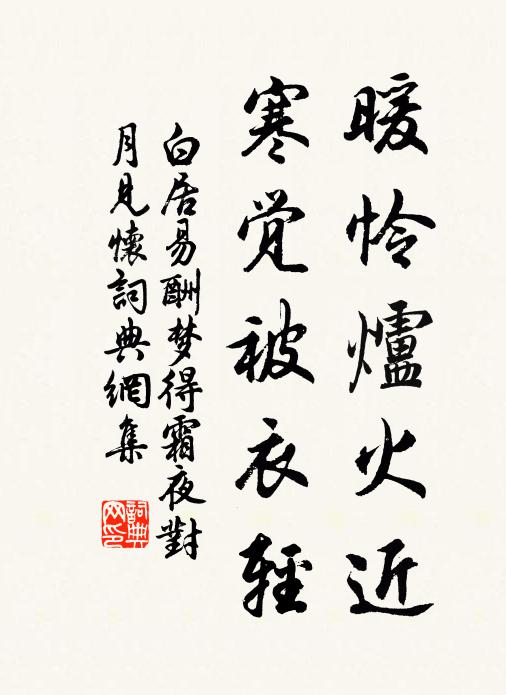 暖怜爐火近
寒觉被衣輕
白居易酬梦得霜夜對
月見懷詞典網集
詞典网印